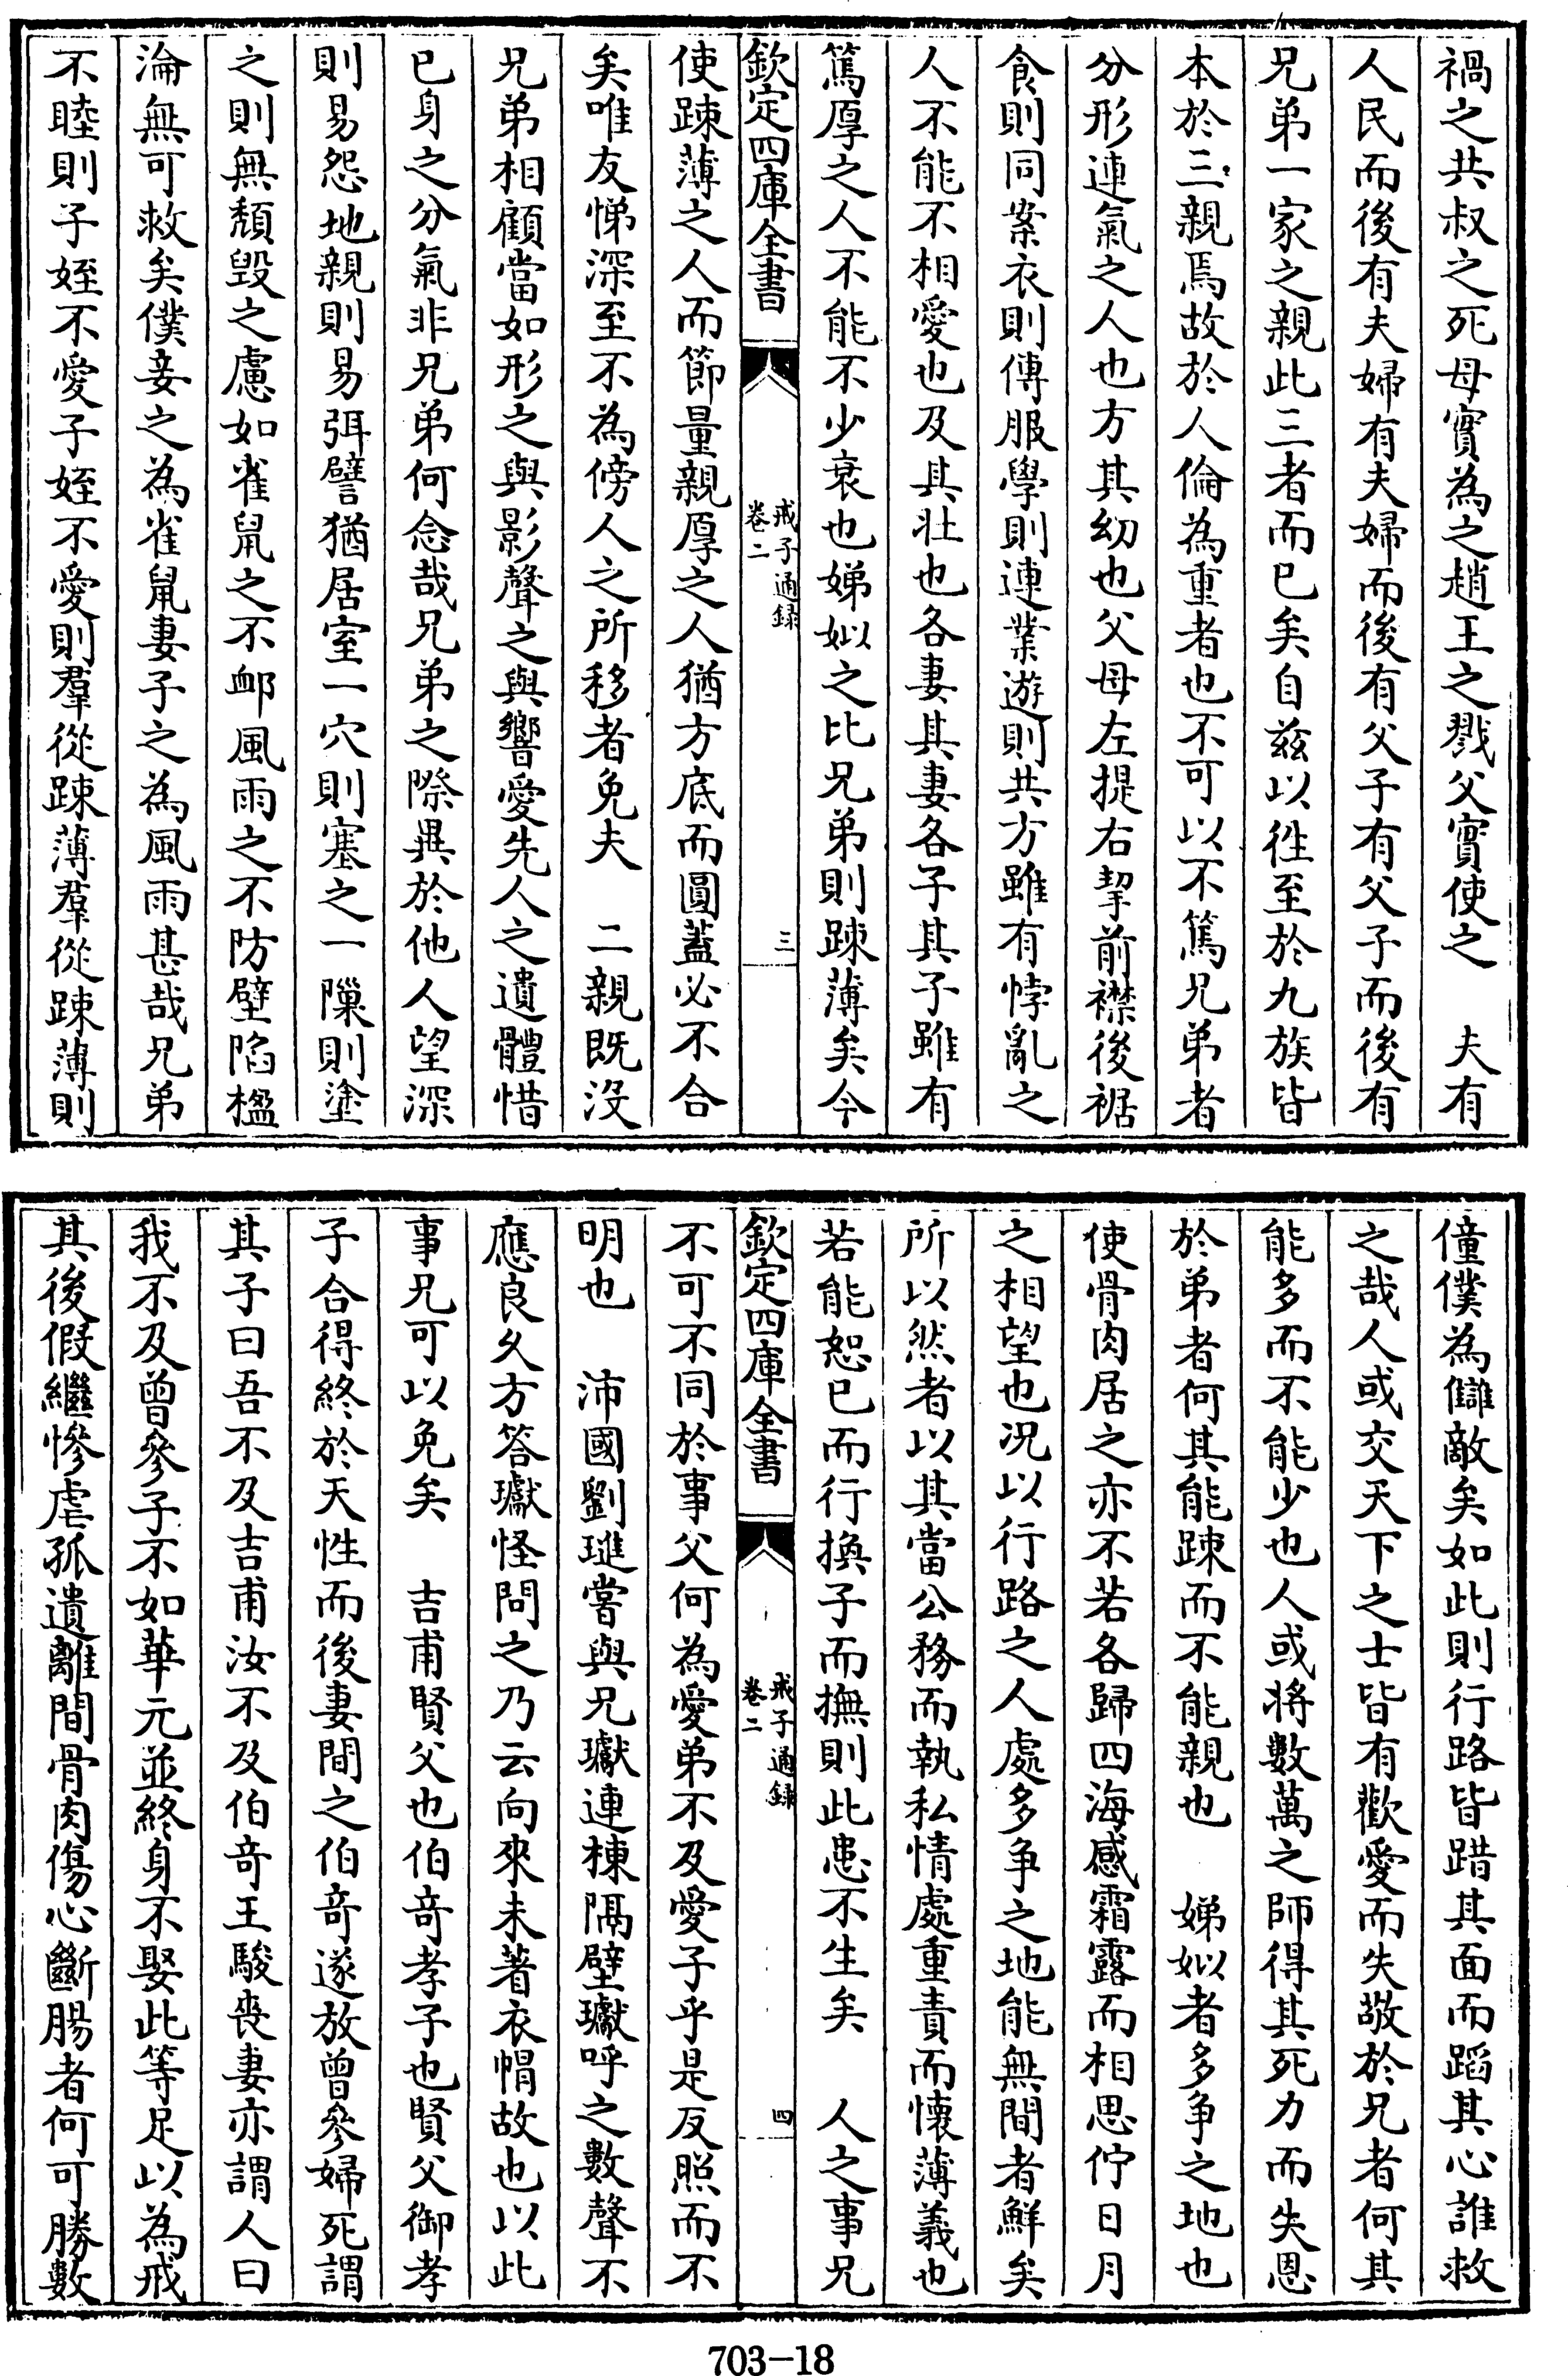 禍之共叔之死母實為之趙王之戮父實使之　夫有
人民而後有夫婦有夫婦而後有父子有父子而後有
兄弟一家之親此三者而已矣自茲以徃至於九族皆
本於三親焉故於人倫為重者也不可以不篤兄弟者
分形連氣之人也方其幼也父母左提右挈前襟後裾
食則同案衣則傳服學則連業遊則共方雖有悖亂之
人不能不相愛也及其壯也各妻其妻各子其子雖有
篤厚之人不能不少衰也娣姒之比兄弟則踈薄矣今
欽定四庫全書
戒子通録
卷二
三
使踈薄之人而節量親厚之人猶方底而圓蓋必不合
矣唯友悌深至不為傍人之所移者免夫　二親既沒
兄弟相顧當如形之與影聲之與響愛先人之遺體惜
已身之分氣非兄弟何念哉兄弟之際異於他人望深
則易怨地親則易弭譬猶居室一穴則塞之一隟則塗
之則無頹毁之慮如雀鼠之不卹風雨之不防壁陷楹
淪無可救矣僕妾之為雀鼠妻子之為風雨甚哉兄弟
不睦則子姪不愛子姪不愛則羣從踈薄羣從踈薄則
僮僕為讎敵矣如此則行路皆踖其面而蹈其心誰救
之哉人或交天下之士皆有歡愛而失敬於兄者何其
能多而不能少也人或將數萬之師得其死力而失恩
於弟者何其能踈而不能親也　娣姒者多争之地也
使骨肉居之亦不若各歸四海感霜露而相思佇日月
之相望也况以行路之人處多争之地能無間者鮮矣
所以然者以其當公務而執私情處重責而懷薄義也
若能恕已而行換子而撫則此患不生矣　人之事兄
欽定四庫全書
戒子通録
卷二
四
不可不同於事父何為愛弟不及愛子乎是反照而不
明也　沛國劉璡嘗與兄瓛連棟隔壁瓛呼之數聲不
應良久方答瓛怪問之乃云向來未著衣帽故也以此
事兄可以免矣　吉甫賢父也伯奇孝子也賢父御孝
子合得終於天性而後妻間之伯奇遂放曾參婦死謂
其子曰吾不及吉甫汝不及伯奇王駿喪妻亦謂人曰
我不及曾參子不如華元並終身不娶此等足以為戒
其後假繼慘虐孤遺離間骨肉傷心斷腸者何可勝數
703-18